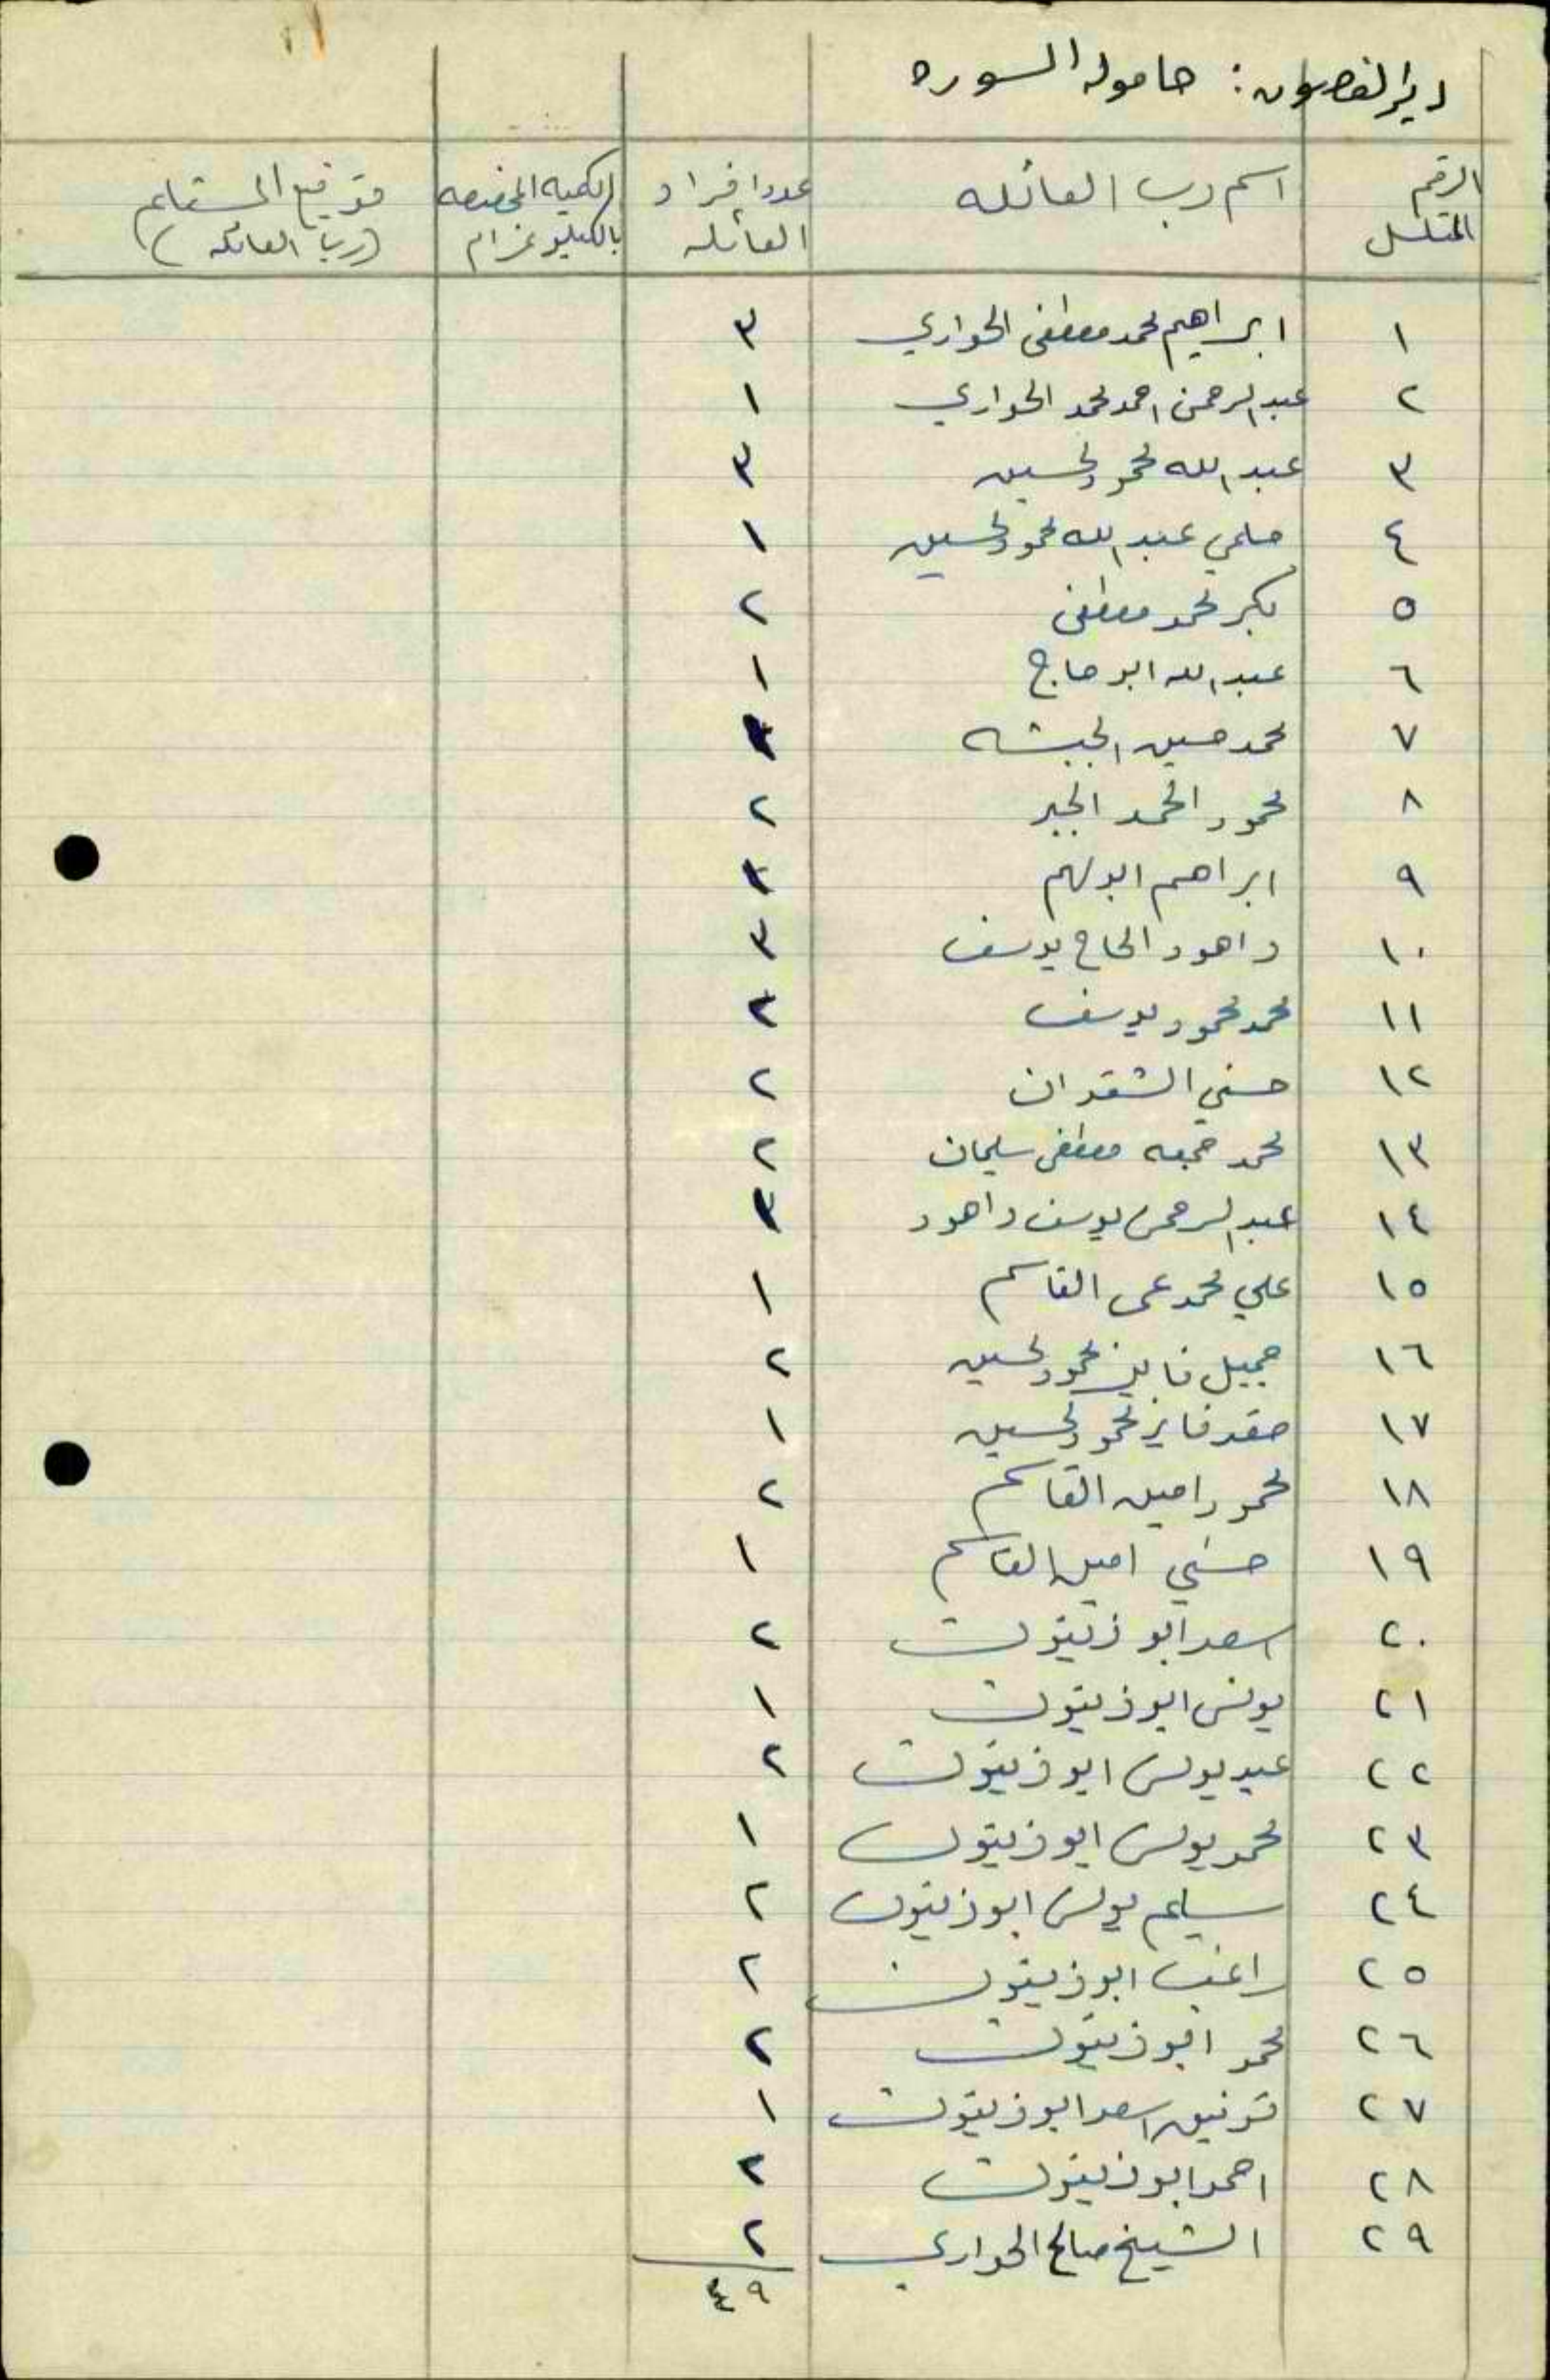 دير الغصون: حامولة السوره
الرقم المتسلسل اسم رب العائله عدد افراد العائله الكميه المخصصه بالكيلو غرام توقيع المستلم (رب العائله)
١ ابراهيم محمد مصطفى الحواري ٣
٢ عبد الرحمن احمد محمد الحواري ١
٣ عبد الله محمود لحسين ٣
٤ حلمي عبد الله محمود لحسين ١
٥ بكر محمد مصطفى ٢
٦ عبد الله ابو حاج ١
٧ محمد حسين
٨ محمود الحمد الجبر ٢
٩ ابراهيم ابو لهم
١٠ داهود الحاج يوسف ٣
١١ محمد محمود يوسف ٢
١٢ حسني الشقدان ٢
١٣ محمد جمعه مصطفى سليمان ٢
١٤ عبد الرحمن يوسف داهود ٣
١٥ علي محمد القاسم ١
١٦ جميل فايز محمود لحسين ٢
١٧ صقر فايز محمود لحسين ١
١٨ محمود امين القاسم ٢
١٩ حسني امين القاسم ١
٢٠ اسعد ابو زيتون ٢
٢١ يونس ابو زيتون ١
٢٢ عيد يونس ابو زيتون ٢
٢٣ محمد يونس ابو زيتون ١
٢٤ سليم يونس ابو زيتون ٢
٢٥ راغب ابو زيتون ٢
٢٦ محمد ابو زيتون ٢
٢٧ توفيق اسعد ابو زيتون ١
٢٨ احمد ابو زيتون ٢
٢٩ الشيخ صالح الحواري ٢
٤٩